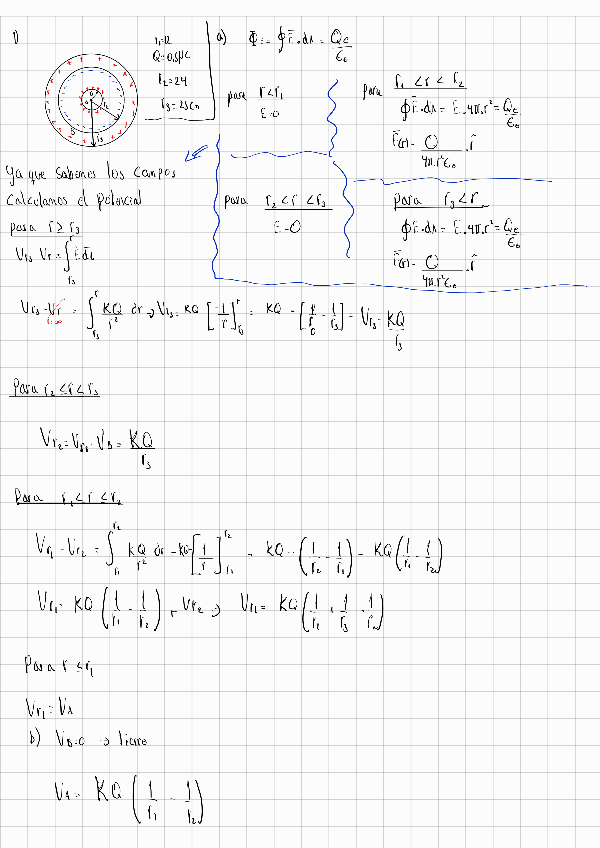 1)
r₁=12
Q=0,5μC
r₂=24
r₃=25cm
a) Φ := ∮ E̅·dA = Qe/ε₀
para r<r₁
E=0
para r₁ < r < r₂
∮ E̅·dA = E·4π·r² = Qe/ε₀
E̅(r) = Q/4π·r²ε₀ · r̂
para r₂ < r < r₃
E=0
para r₃ < r
∮ E̅·dA = E·4π·r² = Qe/ε₀
E̅(r) = Q/4π·r²ε₀ · r̂
ya que sabemos los campos
calculamos el potencial
para r ≥ r₃
Vr₃ - Vr = ∫ E̅ dL
Vr₃ - Vr = ∫ KQ/r² dr → Vr₃ = KQ [-1/r] = KQ - [1/r - 1/r₃] = Vr₃ = KQ/r₃
Para r₂ ≤ r ≤ r₃
Vr₂ = Vr₃ = VB = KQ/r₃
Para r₁ < r ≤ r₂
Vr₁ - Vr₂ = ∫ KQ/r² dr = -KQ [1/r] = KQ · - (1/r₂ - 1/r₁) = KQ (1/r₁ - 1/r₂)
Vr₁ = KQ (1/r₁ - 1/r₂) + Vr₂ → Vr₁ = KQ (1/r₁ + 1/r₃ - 1/r₂)
Para r ≤ r₁
Vr₁ = VA
b) VB=0 → tierra
VA = KQ (1/r₁ - 1/r₂)